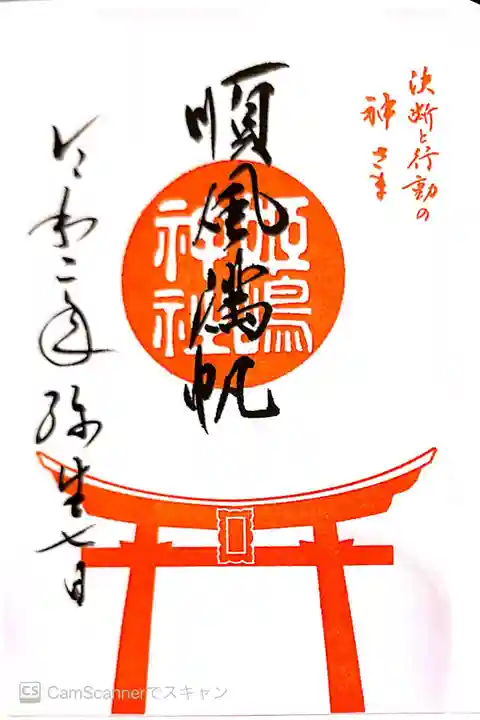 決断と行動の
神さま
順風満帆
姫嶋
神社
令和二年弥生七日
CS CamScannerでスキャン